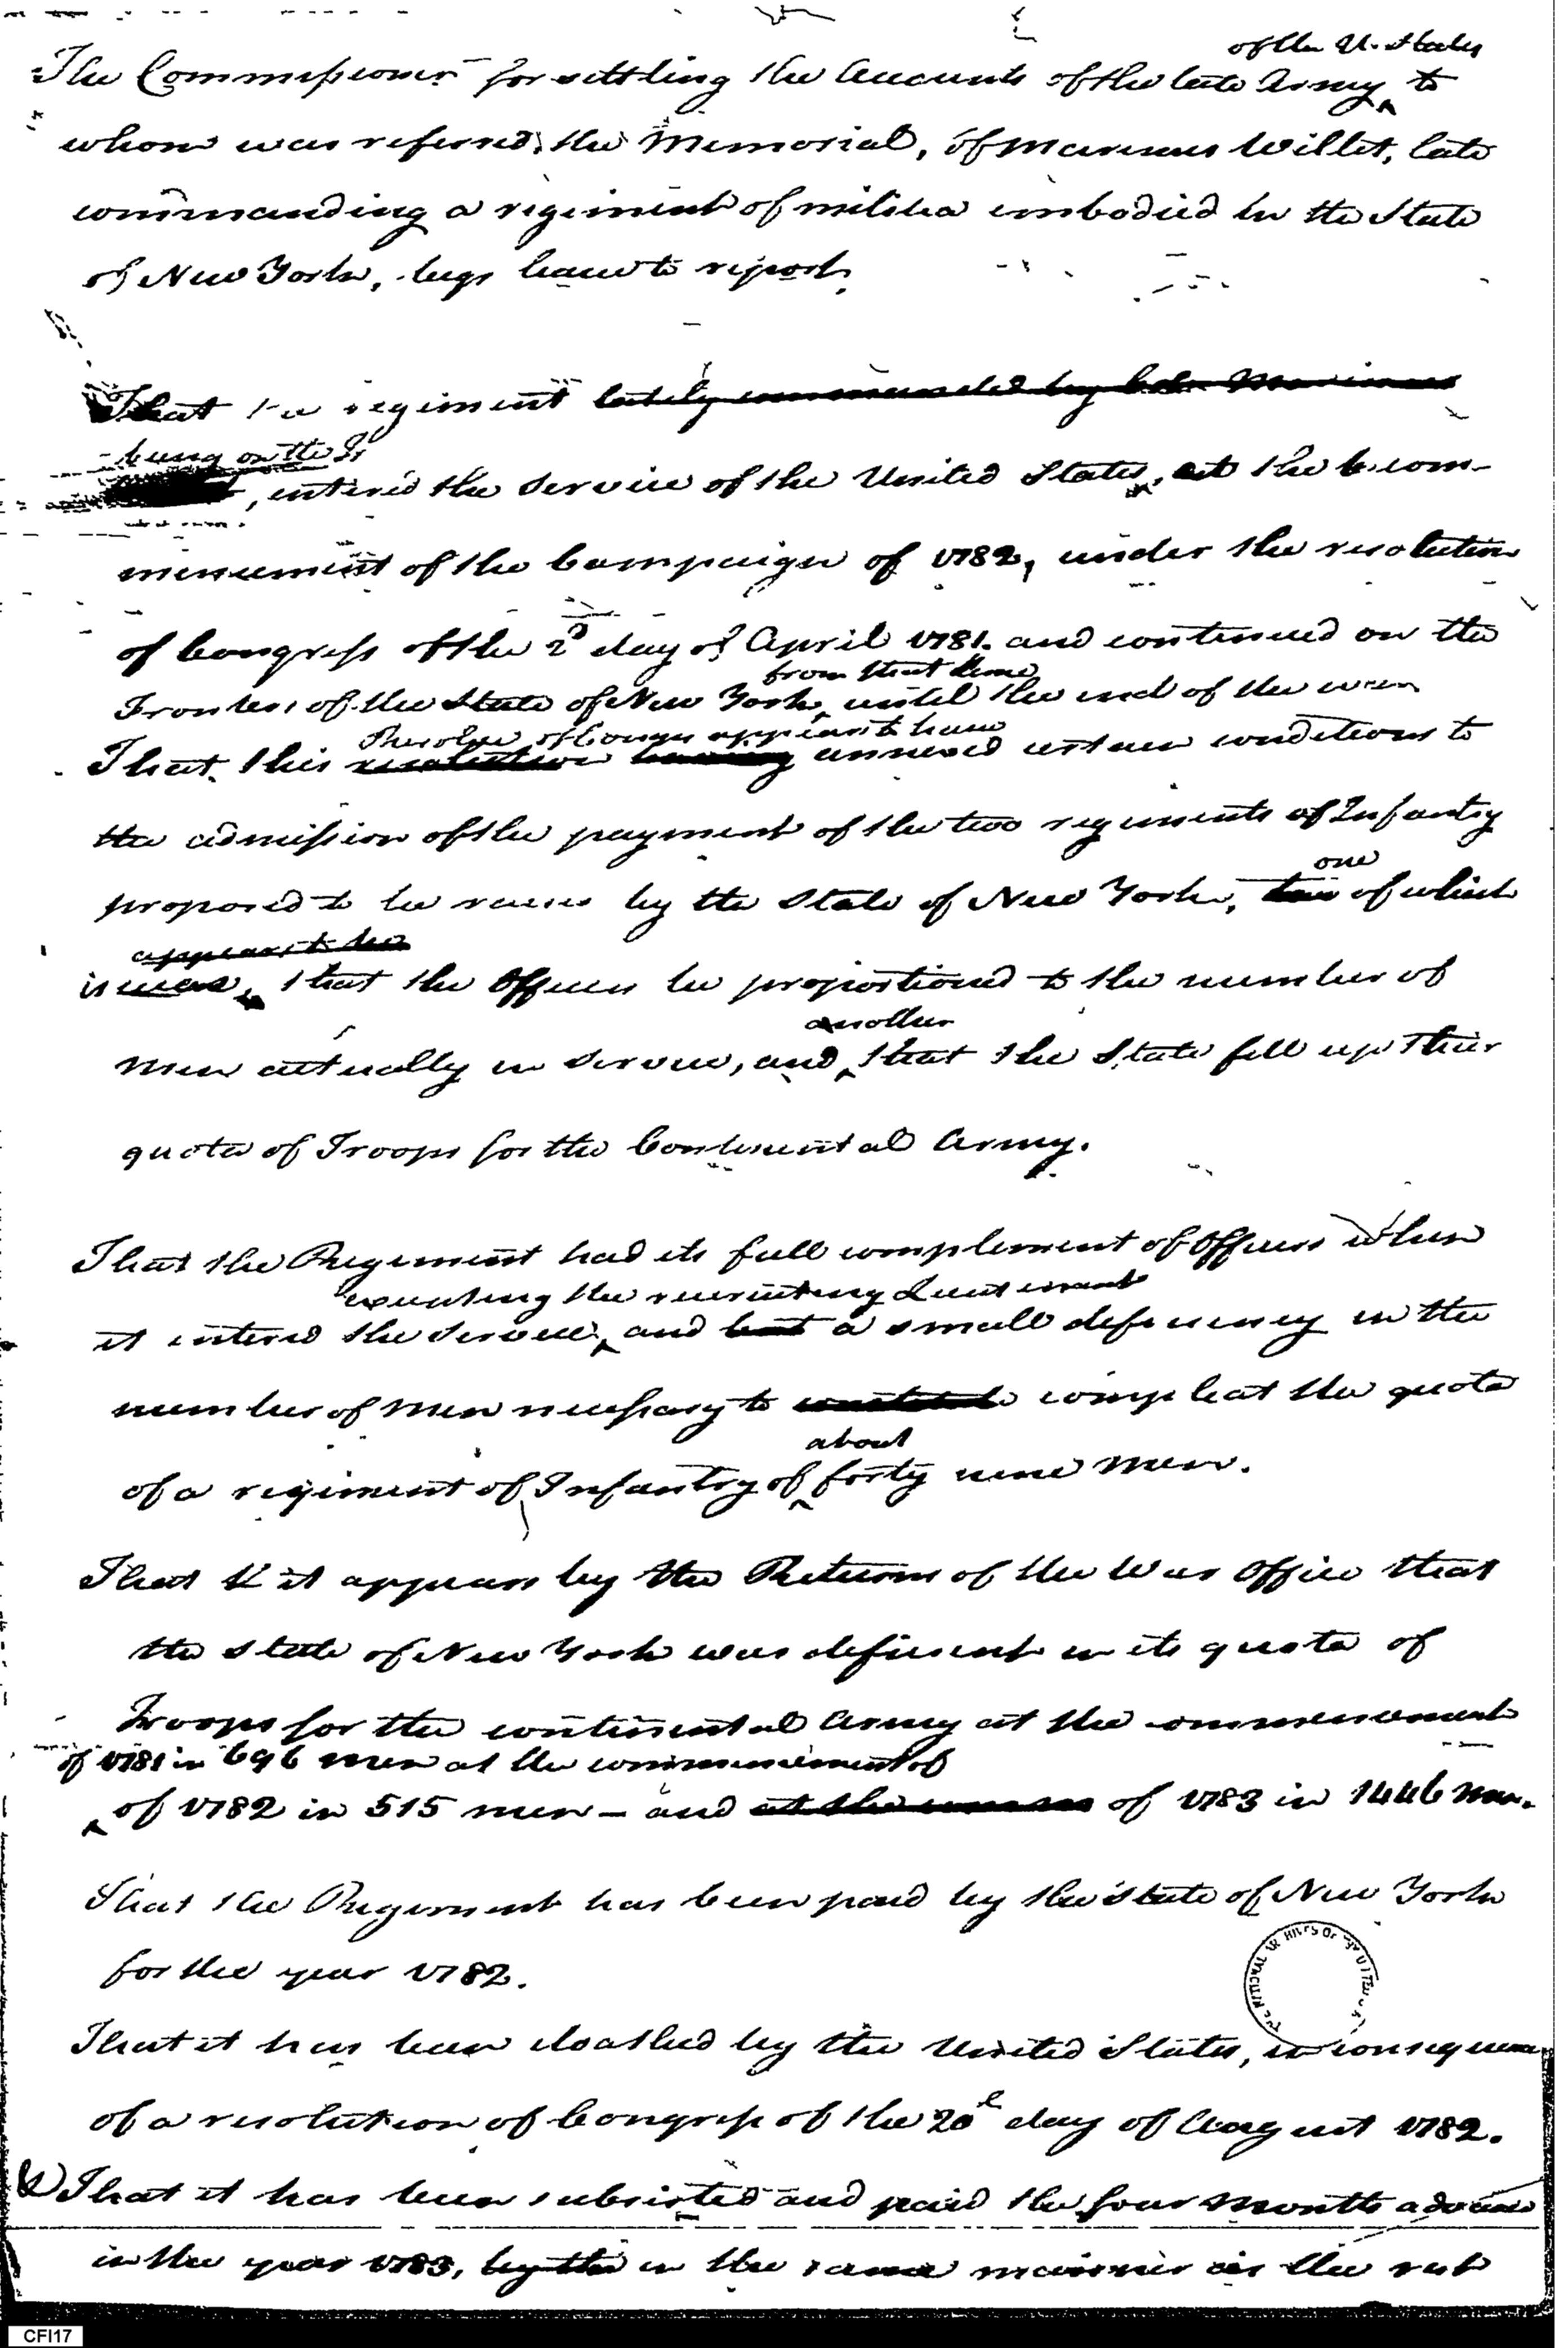 of the U. States
The Commissioner for settling the Accounts of the late Army to
whom was referred, the Memorial, of Marinus Willet, late
commanding a regiment of militia embodied in the State
of New York, begs leave to report,
That the regiment lately commanded by Col. Marinus
being on the
, entered the Service of the United States, at the com-
mencement of the Campaign of 1782, under the resolution
of Congress of the 2d day of April 1781. and continued on the
from that time
Frontiers of the State of New York, until the end of the war
Resolve of Congss appears to have
That, this resolution having annexed certain conditions to
the admission of the payment of the two regiments of Infantry
one
proposed to be raised by the State of New York, two of which
appears to be
is was, that the Officers be proportioned to the number of
another
men actually in service, and that the State fill up their
quota of Troops for the Continental Army.
That the Regiment had its full complement of Officers when
excepting the recruiting Lieutenant
it entered the service, and but a small deficiency in the
number of men necessary to constitute compleat the quota
about
of a regiment of Infantry of forty nine men.
That it appears by the Returns of the War Office that
the State of New York was deficient in its quota of
Troops for the continental Army at the commencement
of 1781 in 696 men at the commencement of
of 1782 in 515 men – and at the commen of 1783 in 1446 men.
That the Regiment has been paid by the State of New York
for the year 1782.
That it has been cloathed by the United States, in consequence
of a resolution of Congress of the 20th day of August 1782.
That it has been subsisted and paid the four months advance
in the year 1783, by the in the same manner as the rest
CFI17